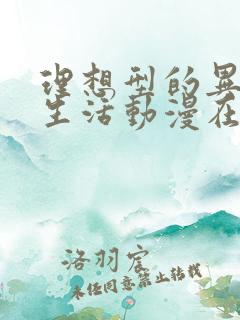 理想型的異
生活動漫在
洛羽宸
未经同意禁止转载